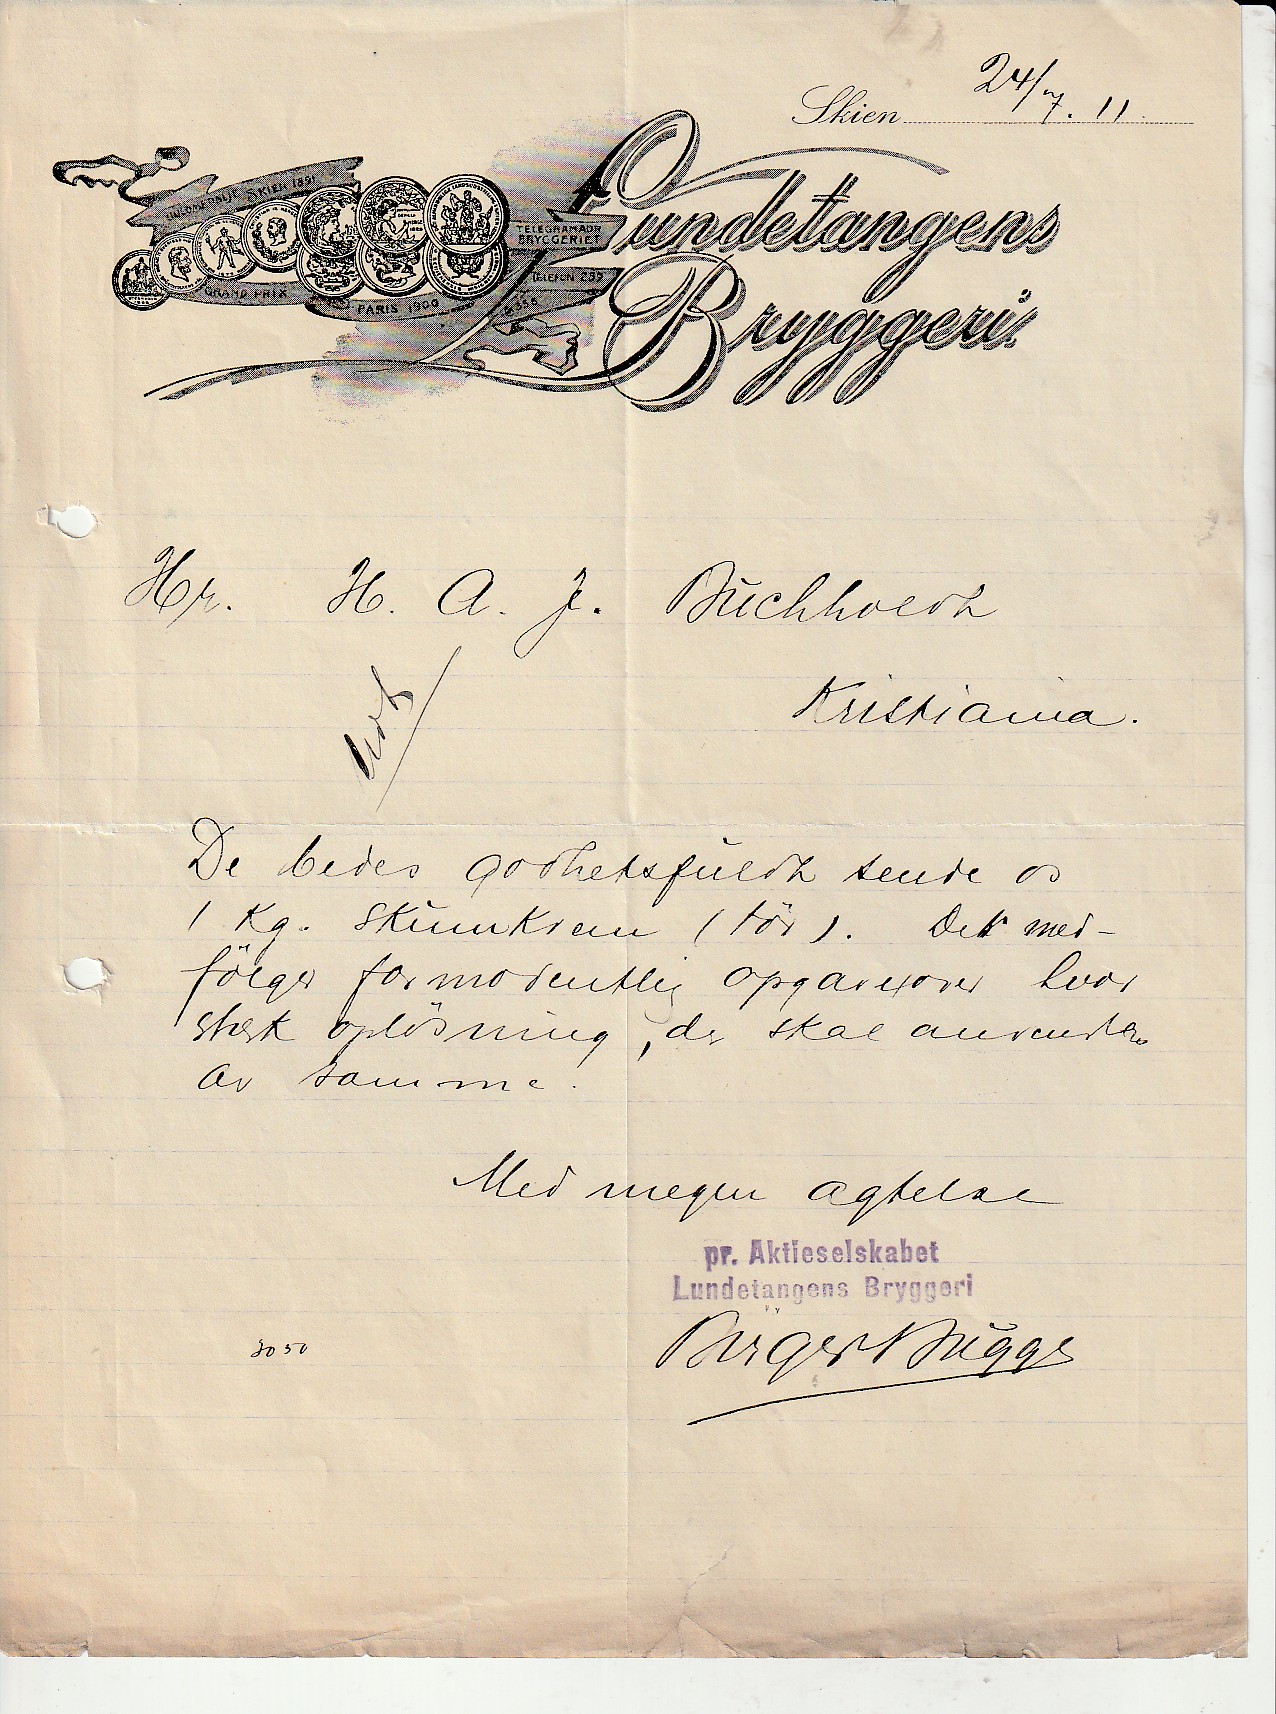 Skien 24/7. 11
SKIEN 1891
GRAND PRIX
PARIS 1900
TELEGRAMADR
BRYGGERIET
TELEFON 232
Lundetangens
Bryggeri.
Hr. H. A. J. Buchholdt
Kristiania.
De bedes godhetsfuldt sende os
1 Kg. Skumkrem (tör). Det med-
fölger formodentlig opgave over hvor
sterk oplösning, der skal anvendes
av samme.
Med megen agtelse
pr. Aktieselskabet
Lundetangens Bryggeri
Birger Bugge
3050